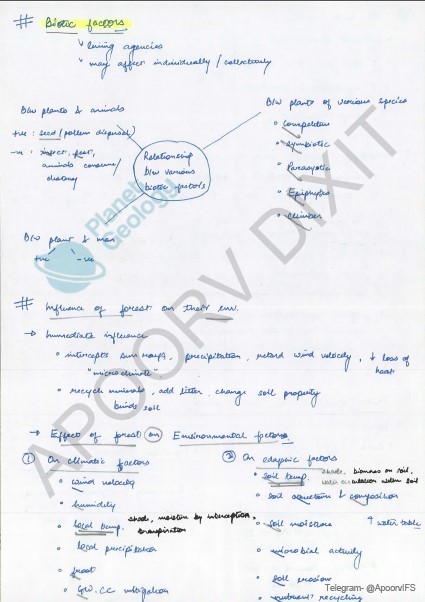 # Biotic factors
living agencies
may affect individually / collectively
B/w plants & animals
+ve : seed / pollen dispersal
-ve : insect, pest,
animals consume /
destroy
Relationship
B/w various
biotic factors
B/w plants of various species
• Competition
• Symbiotic
• Parasytic
• Epiphytes
• Climber
B/w plant & man
+ve -ve
Planet
Geology
APOORV DIXIT
# Influence of forest on their env.
→ Immediate influence
• intercepts sun rays, precipitation, retard wind velocity, ↓ loss of
heat
"microclimate"
• recycle minerals, add litter, change soil property
binds soil
→ Effect of forest on Environmental factors
① On climatic factors
• wind velocity
• humidity
• local temp. shade, moisture by interception,
transpiration
• local precipitation
• frost
• GW, CC mitigation
② On edaphic factors
• soil temp. shade, biomass on soil,
water circulation within soil
• soil structure & composition
• soil moisture ↑ water table
• microbial activity
• soil erosion
• nutrient recycling
Telegram- @ApoorvIFS